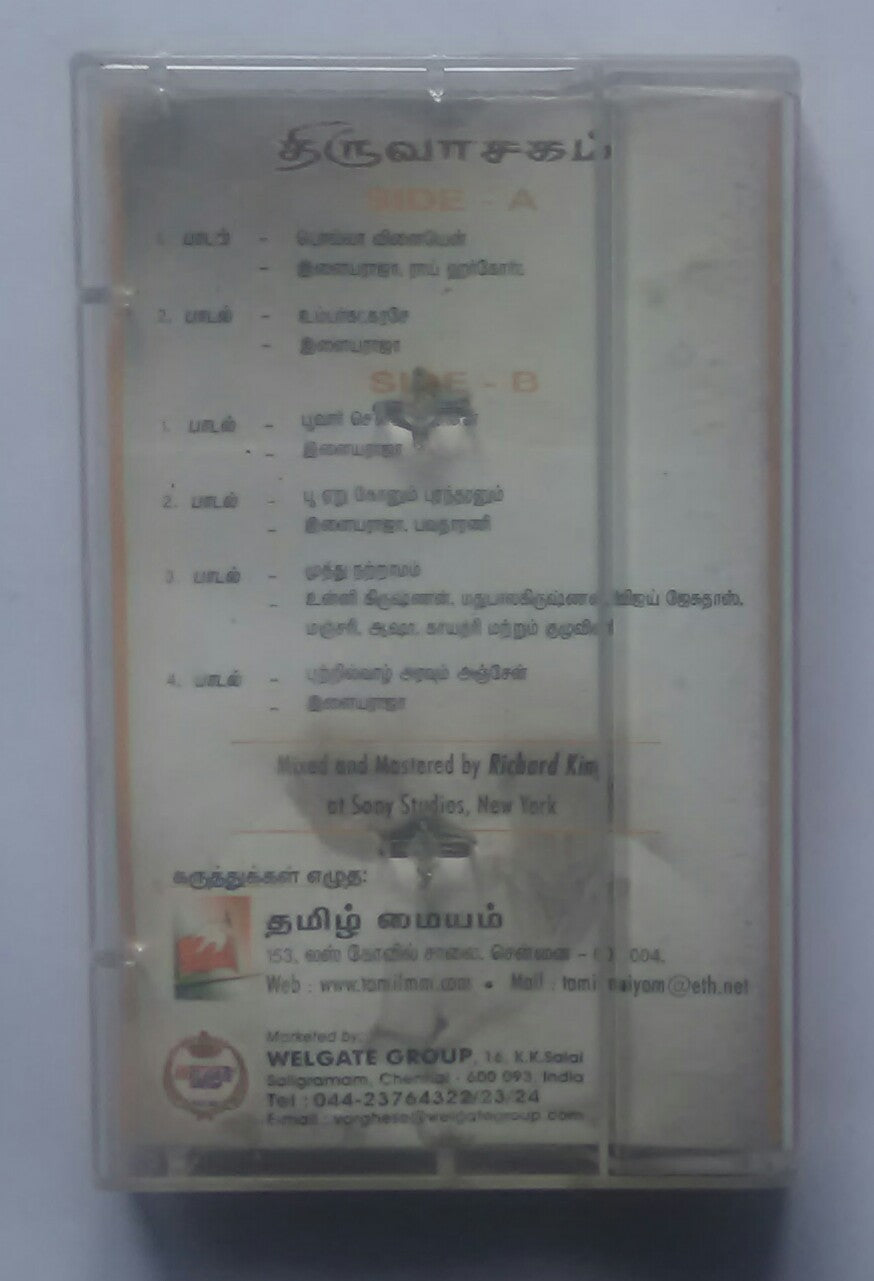 திருவாசகம்
SIDE - A
1. பாடல் - பொல்லா வினையேன்
- இளையராஜா, ராய் ஹார்கோட்
2. பாடல் - உம்பர்கட்கரசே
- இளையராஜா
SIDE - B
1. பாடல் - பூவார்
- இளையராஜா
2. பாடல் - பூ ஏறு கோனும் புரந்தரனும்
- இளையராஜா, பவதாரணி
3. பாடல் - முத்து நற்றாமம்
- உன்னி கிருஷ்ணன், மதுபாலகிருஷ்ணன், விஜய் ஜேசுதாஸ்,
மஞ்சரி, ஆஷா, காயத்ரி மற்றும் குழுவினர்
4. பாடல் - புற்றில்வாழ் அரவும் அஞ்சேன்
- இளையராஜா
Mixed and Mastered by Richard King
at Sony Studios, New York
கருத்துக்கள் எழுத:
தமிழ் மையம்
153, லஸ் கோவில் சாலை, சென்னை - 600 004.
Web : www.tamilmm.com • Mail : tamilmaiyam@eth.net
Marketed by:
WELGATE GROUP, 16, K.K.Salai
Saligramam, Chennai - 600 093, India
Tel : 044-23764322/23/24
E-mail : varghese@welgategroup.com